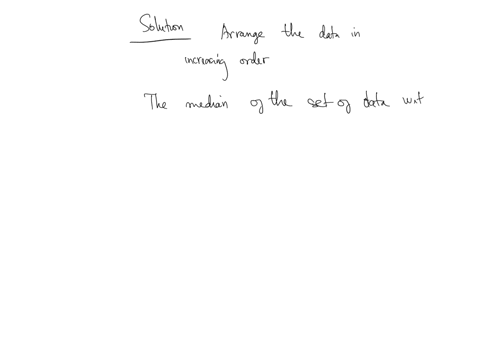 Solution Arrange the data in
increasing order
The median of the set of data wxt